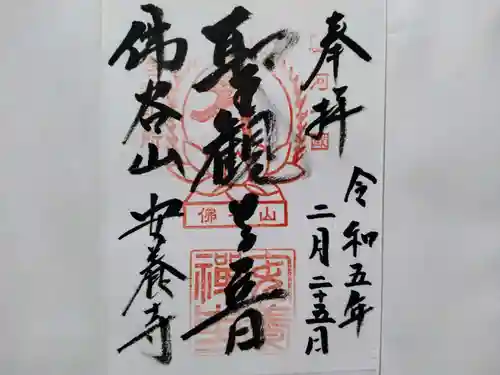 奉拝
令和五年
二月二十五日
聖観世音
佛谷山
安養寺
佛谷山